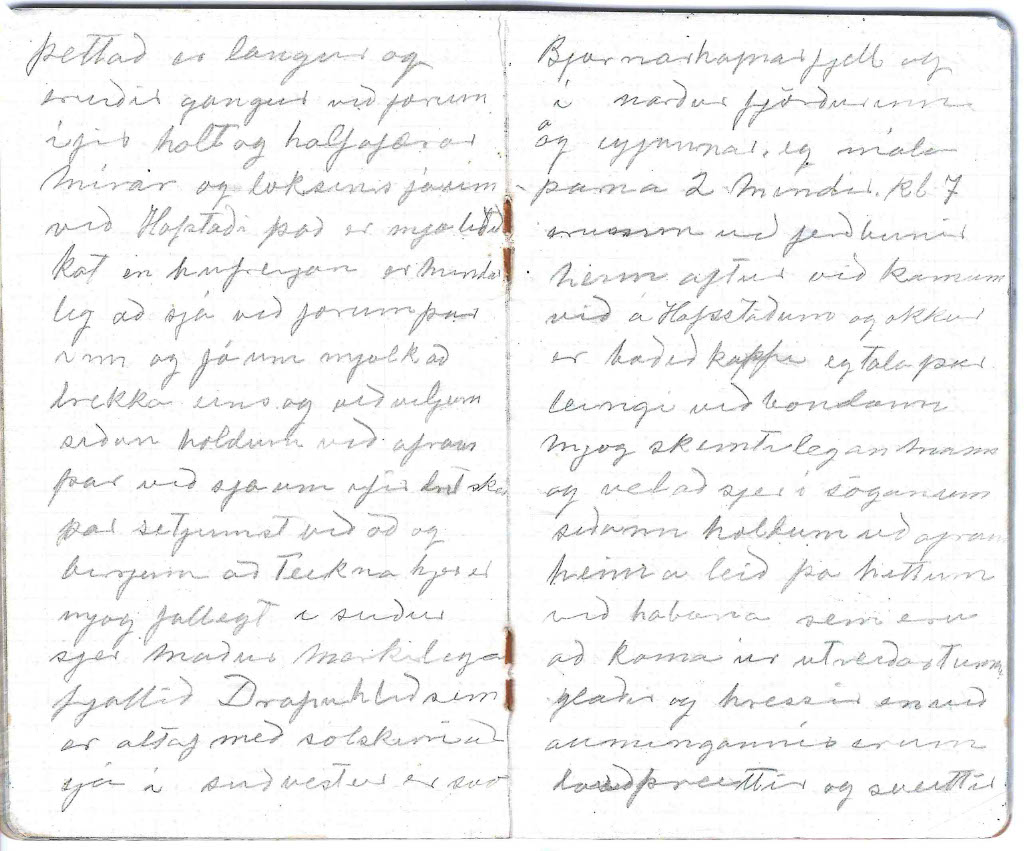 þettað er langur og
erviðir gangur við förum
ifir holt og halfafærar
mírar og loksins förum
við Hofstaði það er mjo litið
kot en husfreyjan er mindar
leg að sjá við förum þar
inn og fáum mjolk að
drekka eins og við viljum
siðan holdum við afram
þar við sjoum ifir
þar setjumst við að og
birjum að teikna hjer er
mjog fallegt i suður
sjer maður merkilega
fjallið Drapuhlið sem
er altaf með solskini að
sjá í suðvestur er svo
Bjarnarhafnarfjell og
í norður fjörðurinn
og eyjarnar. eg mála
þarna 2 mindir. kl 7
erum við ferðbunir
heim aftur við komum
við á Hofsstöðum og okkur
er boðið kaffi eg tala þar
leingi við bondann
mjog skemtilegan mann
og vel að sjer i sögunum
siðann holdum við afram
heim a leið þa hittum
við
að koma úr utreiðartúrnum
glaðir og hressir en við
aumingarnir erum
þreittir og sveittir